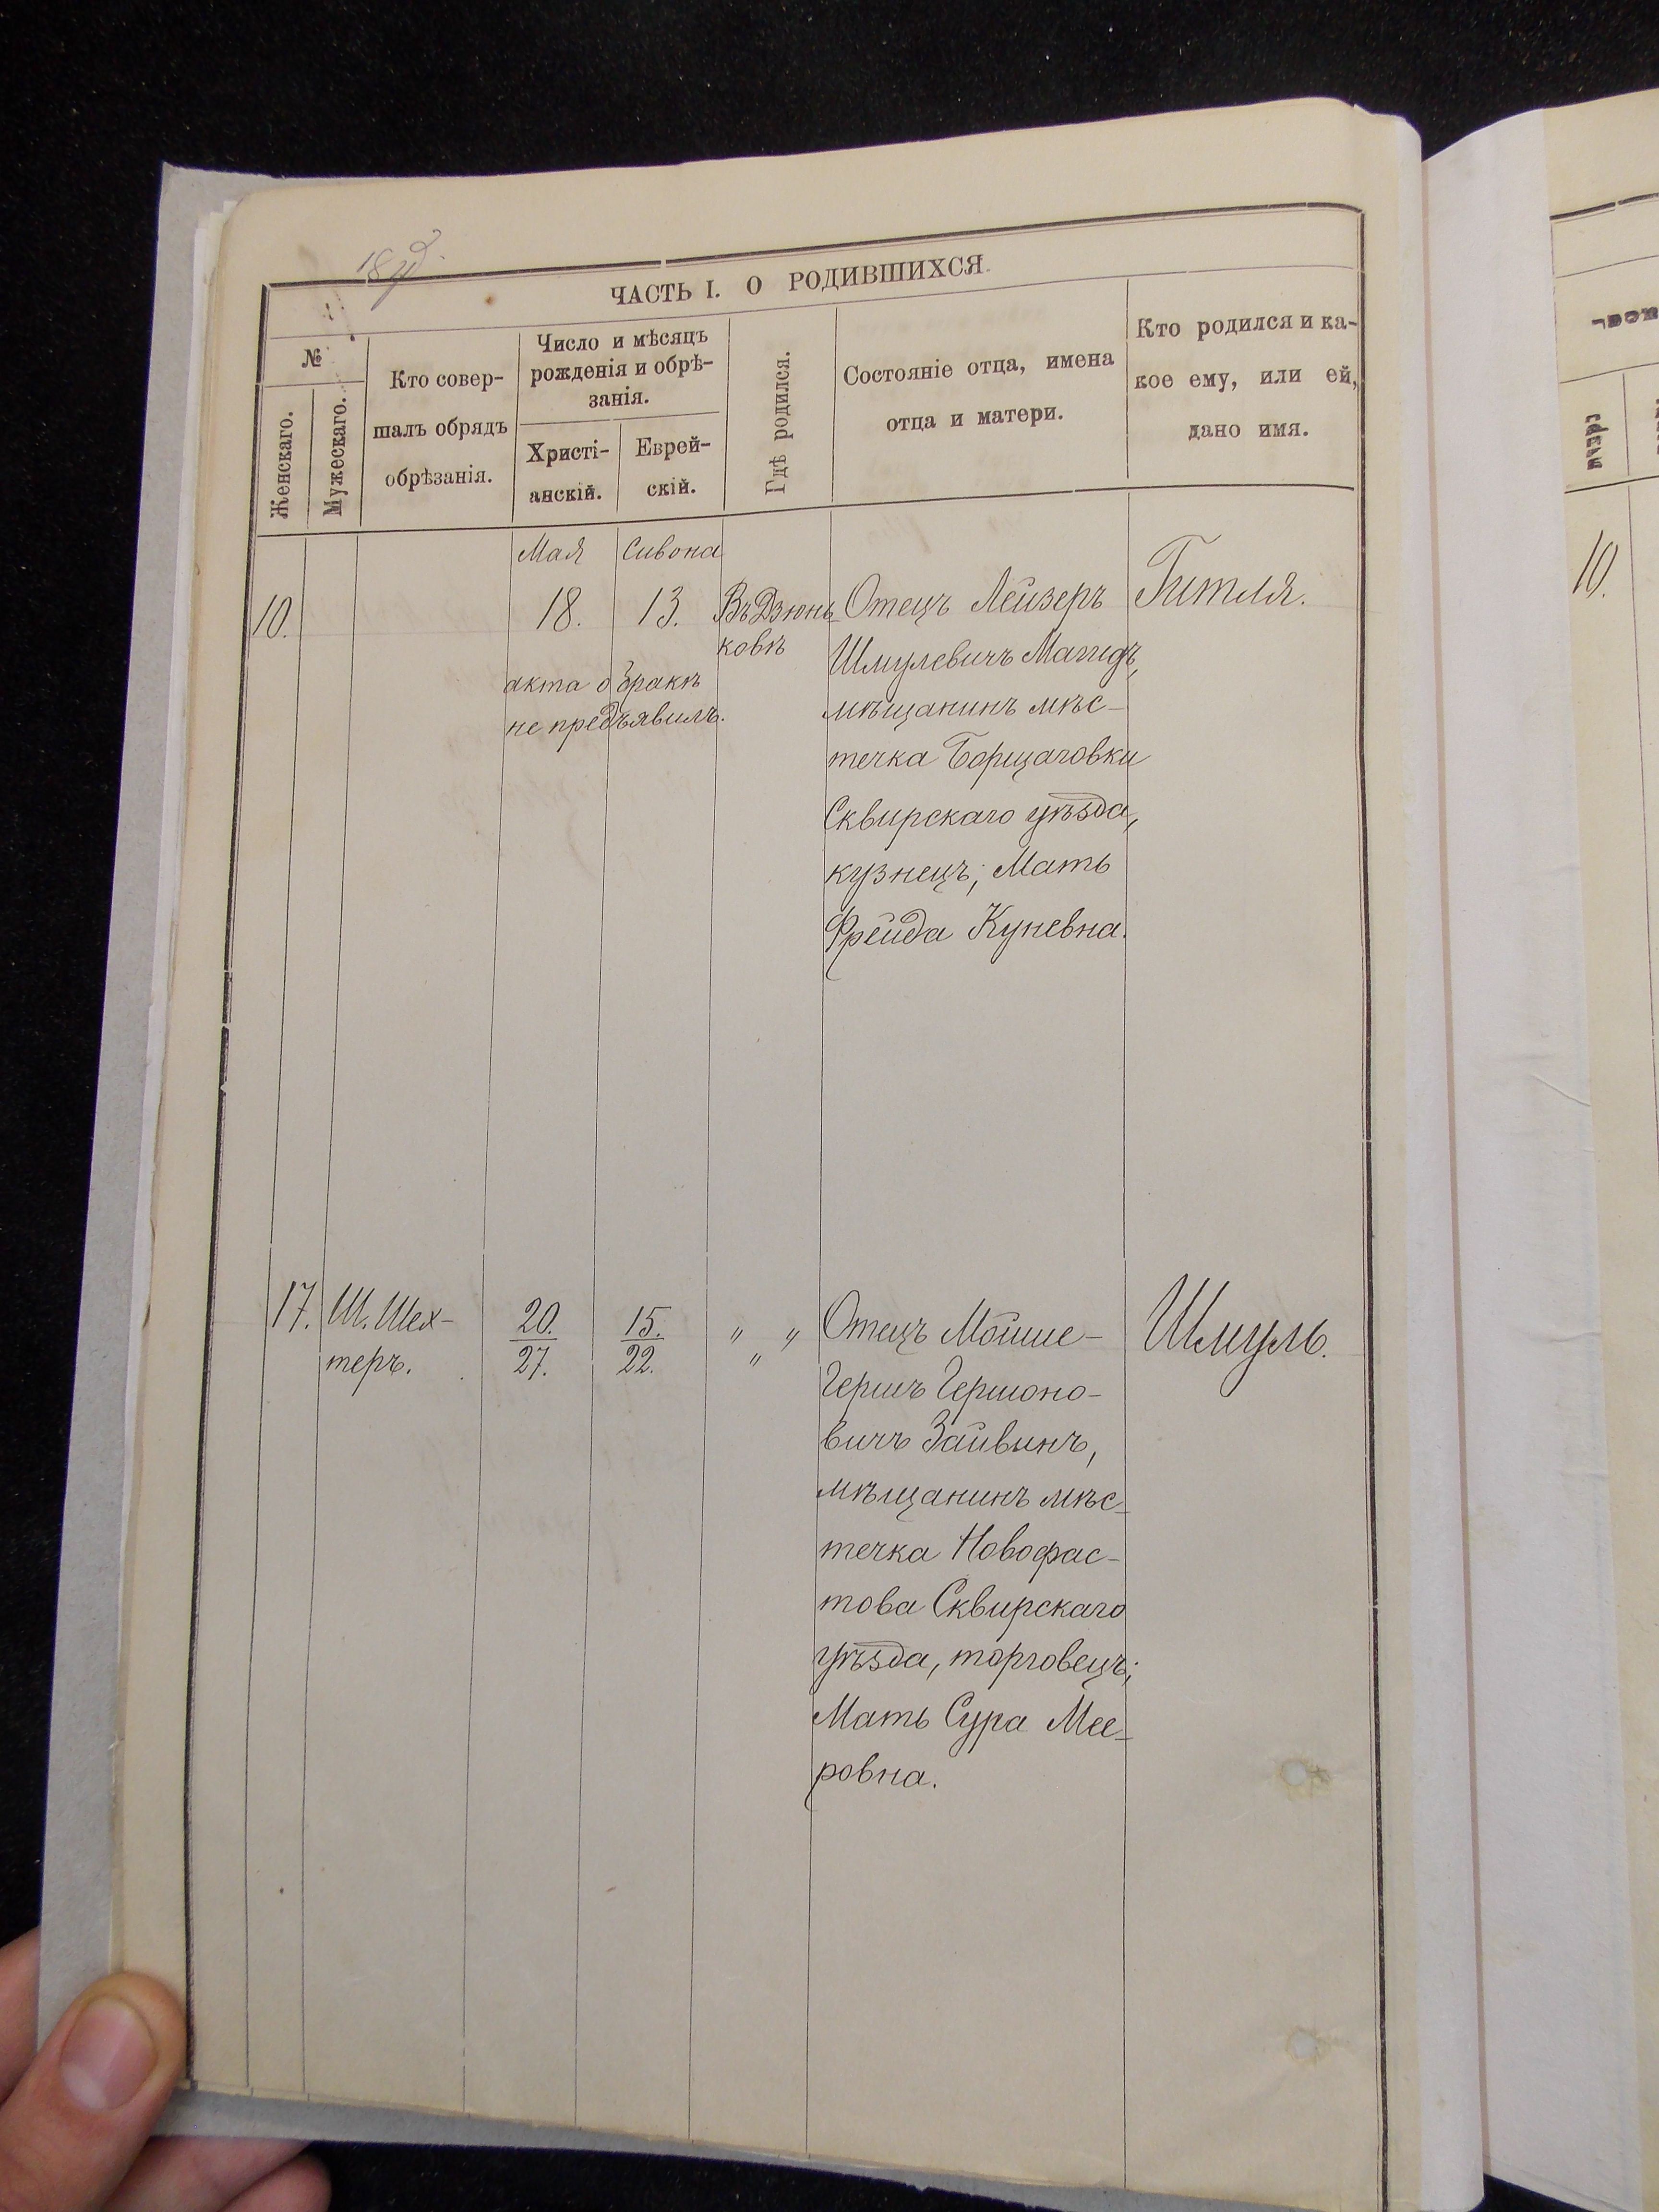 ЧАСТЬ I. О РОДИВШИХСЯ.
№
Женскаго.
Мужескаго.
Кто совер-
шалъ обрядъ
обрѣзанія.
Число и мѣсяцъ
рожденія и обрѣ-
занія.
Христі-
анскій.
Еврей-
скій.
Гдѣ родился.
Состояніе отца, имена
отца и матери.
Кто родился и ка-
кое ему, или ей,
дано имя.
Мая
Сивона
10.
18.
13.
акта о бракѣ
не предъявилъ.
Въ Дзюнь-
ковѣ
Отецъ Лейзеръ
Шмулевичъ Магидъ,
мѣщанинъ мѣс-
течка Борщаговки
Сквирскаго уѣзда,
кузнецъ; Мать
Фрейда Куневна.
Гитля.
17.
Ш. Шех-
теръ.
20.
27.
15.
22.
" "
"
Отецъ Мойше-
Гершъ Гершоно-
вичъ Зайвинъ,
мѣщанинъ мѣс-
течка Новофас-
това Сквирскаго
уѣзда, торговецъ;
Мать Сура Мее-
ровна.
Шмуль.
10.